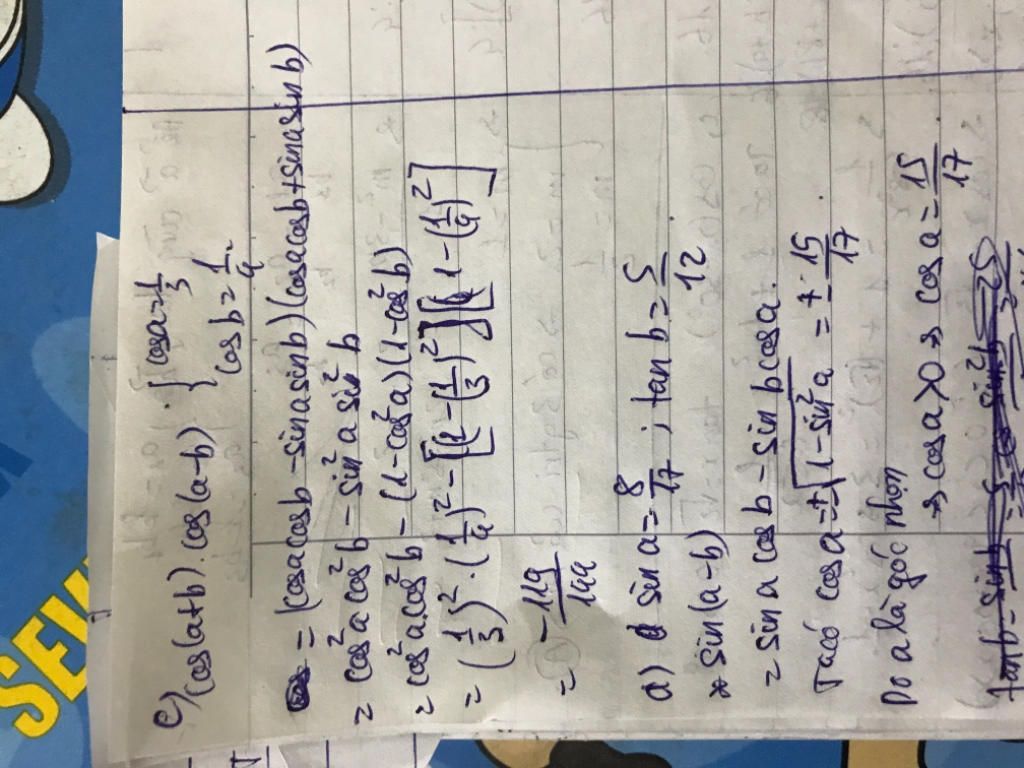 e) cos(a+b).cos(a-b). { cosa = 1/3
cosb = 1/4
= (cosacosb - sinasinb)(cosacosb + sinasinb)
= cos²a cos²b - sin²a sin²b
= cos²a.cos²b - (1-cos²a)(1-cos²b)
= (1/3)².(1/4)² - [1-(1/3)²][1-(1/4)²]
= -119/144
a) sin a = 8/17 ; tan b = 5/12
* sin(a-b)
= sin a cos b - sin b cosa.
Ta có cos a = ±√(1-sin²a) = ± 15/17
Do a là góc nhọn
→ cosa > 0 → cos a = 15/17
tan b = sin b
SEV